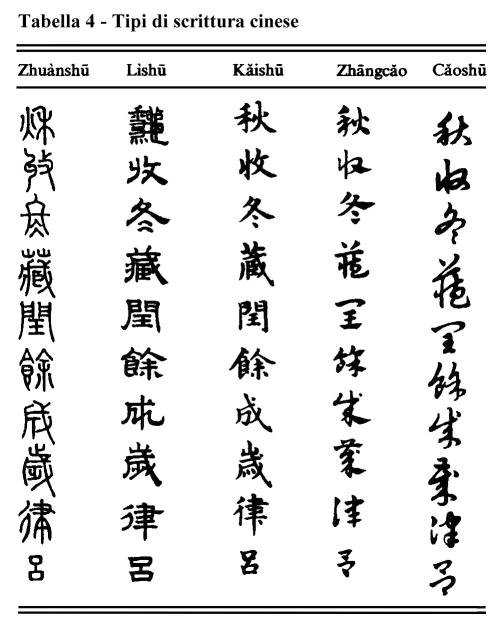 Tabella 4 - Tipi di scrittura cinese
Zhuànshū Lìshū Kǎishū Zhāngcǎo Cǎoshū
秋 龝 秋 秋 秋
收 收 收 收 收
冬 冬 冬 冬 冬
藏 藏 藏 藏 藏
閏 閏 閏 閏 閏
餘 餘 餘 餘 餘
成 成 成 成 成
歲 歲 歲 歲 歲
律 律 律 律 律
呂 呂 呂 呂 呂